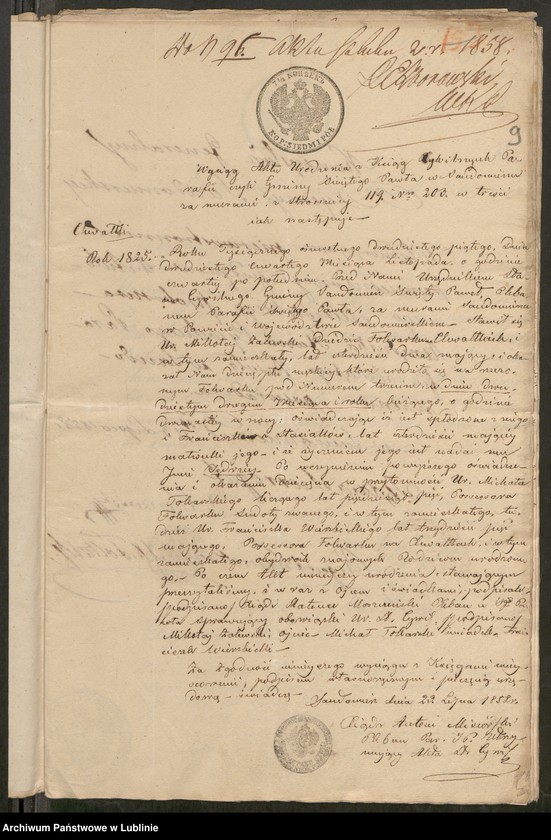 Akta
1858.
7½ KOPIEJEK
KOP: SIEDM I PÓŁ
9
Wyciąg Aktu Urodzenia z Xiąg Cywilnych Pa-
rafii czyli Gminy Świętego Pawła w Sandomierzu
za murami, z stronnicy 119. Nro 203. w treści
jak następuje
Chwałki
Rok 1825. Roku Tysiącznego ośmsetnego dwudziestego piątego, Dnia
dwudziestego czwartego Miesiąca Listopada, o godzinie
czwartej po południu, Przed Nami Urzędnikiem Sta-
nu Cywilnego, Gminy Sandomierz Święty Paweł, Pleba-
nem Parafii Świętego Pawła, za murami Sandomierza
w Powiecie i Województwie Sandomierskim Stawił się
Ur. Mikołaj Zalewski Dziedzic Folwarku Chwałkach, i
w tym zamieszkały, lat dwa mający i oka-
zał Nam dziecię płci męzkiej które urodziło się na rzeczo-
nym Folwarku pod Numerem trzecim, w dniu dwu-
dziestym drugim Miesiąca i roku bieżącego, o godzinie
dwunastej w nocy; oświadczając iż jest spłodzone z niego
i Franciszki z lat mającej
małżonki jego i iż życzeniem jego jest nadać mu
Imie Jędrzej. Po uczynieniu powyższego oświadcze-
nia i okazaniu Dziecięcia w przytomności Ur. Michała
Tokarskiego liczącego lat pięćdziesiąt pięć, Possessora
Folwarku zwanego, i w tym zamieszkałego, tu-
dzież Ur. Franciszka Wierzbickiego lat trzydzieści pięć
mającego, Possessora Folwarku na Chwałkach, i w tym
zamieszkałego, obydwóch znajomych Rodziców urodzone-
go. Po czem Akt niniejszy urodzenia stawającym
przeczytaliśmy, i w raz z Ojcem i świadkami, podpisali.
podpisano Xiądz Mateusz Pleban
sprawujący obowiązki Ur. St. Cywil. podpisano
Mikołaj Zalewski, Ojciec Michał Tokarski świadek Fran-
ciszek Wierzbicki
Za zgodność niniejszego wyciągu z Księgami
podpisem własnoręcznym i pieczęcią urzę-
dową świadczę
Sandomierz dnia 22 Lipca 1858 r.
Xiądz Antoni
Pleban Par. S. P. Utrzy-
mujący Akta St. Cywil
Archiwum Państwowe w Lublinie